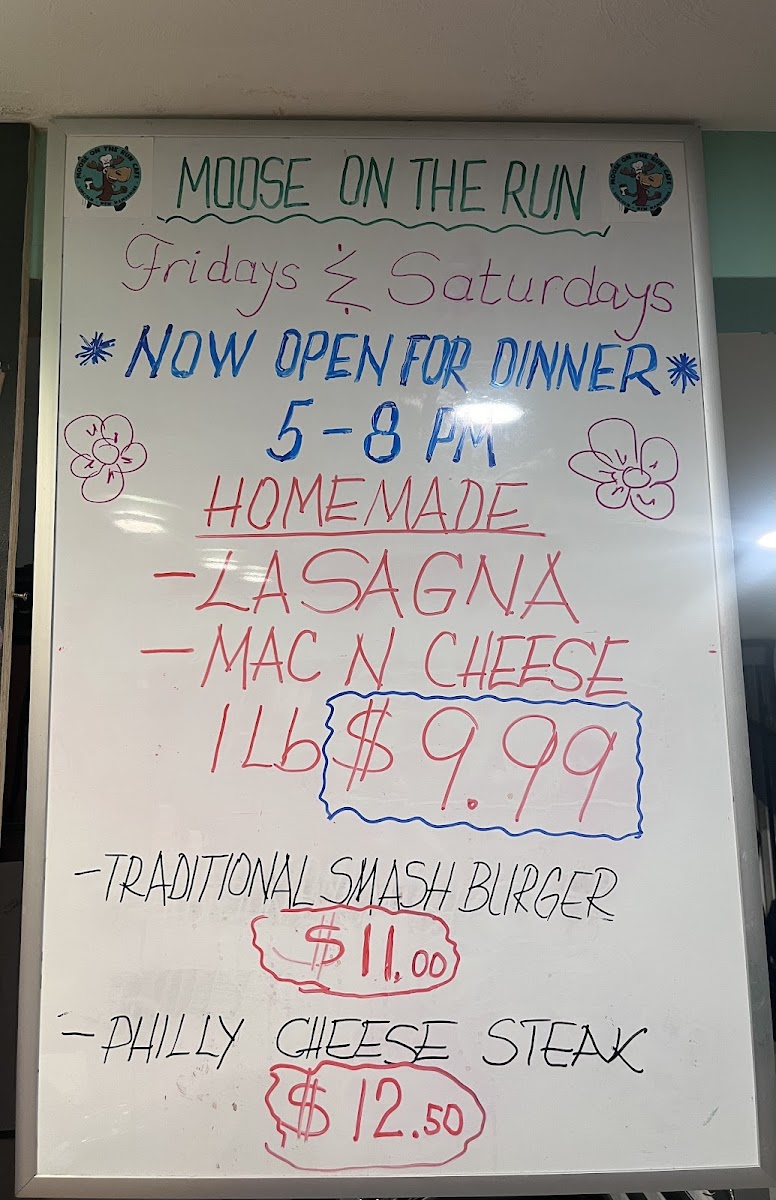 MOOSE ON THE RUN
Fridays & Saturdays
* NOW OPEN FOR DINNER *
5-8 PM
HOMEMADE
- LASAGNA
- MAC N CHEESE
1Lb $9.99
- TRADITIONAL SMASH BURGER
$11.00
- PHILLY CHEESE STEAK
$12.50